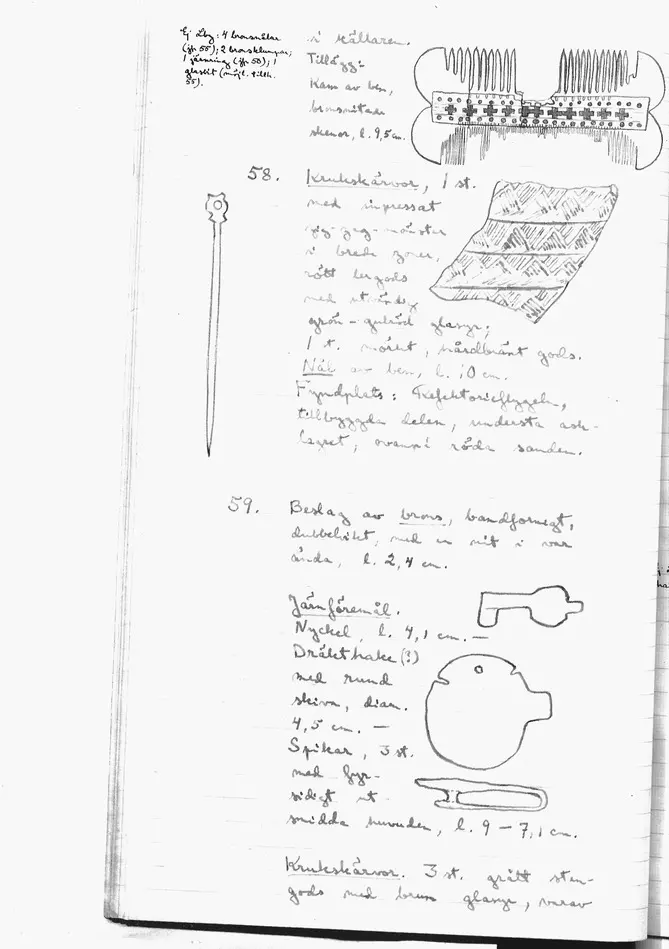 Ej Lbg: 4 bronsnålar
(jfr 55); 2 bronsklumpar;
1 järnring (jfr 50); 1
glasbit (möjl. tillh.
55).
i källaren.
Tillägg:
Kam av ben,
bronsnitade
skenor, l. 9,5 cm.
58. Krukskärvor, 1 st.
med impressat
zig-zag-mönster
i breda zoner,
rött lergods
med utvändig
grön-gulröd glasyr;
1 st. mörkt, hårdbränt gods.
Nål av ben, l. 10 cm.
Fyndplats: Refektorieflygeln,
tillbyggda delen, understa ask-
lagret, ovanpå röda sanden.
59. Beslag av brons, bandformigt,
dubbelvikt, med en nit i var
ända, l. 2,4 cm.
Järnföremål.
Nyckel, l. 4,1 cm. —
Dräkthake (?)
med rund
skiva, diam.
4,5 cm. —
Spikar, 3 st.
med fyr-
sidigt ut-
smidda huvuden, l. 9 – 7,1 cm.
Krukskärvor. 3 st. grått sten-
gods med brun glasyr, varav